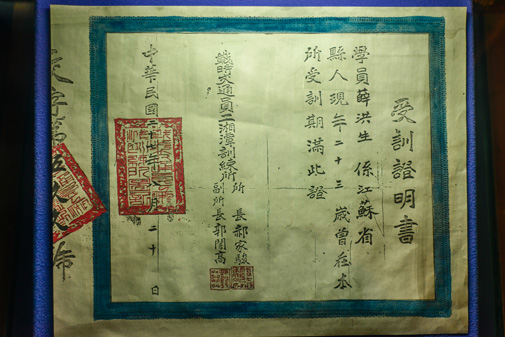 受訓證明書
學員薛洪生係江蘇省
縣人現年二十三歲曾在本
所受訓期滿此證
戰時交通員工湘潭訓練所
所長郝家駿
副所長郭閲高
中華民國二十四年 月二十日